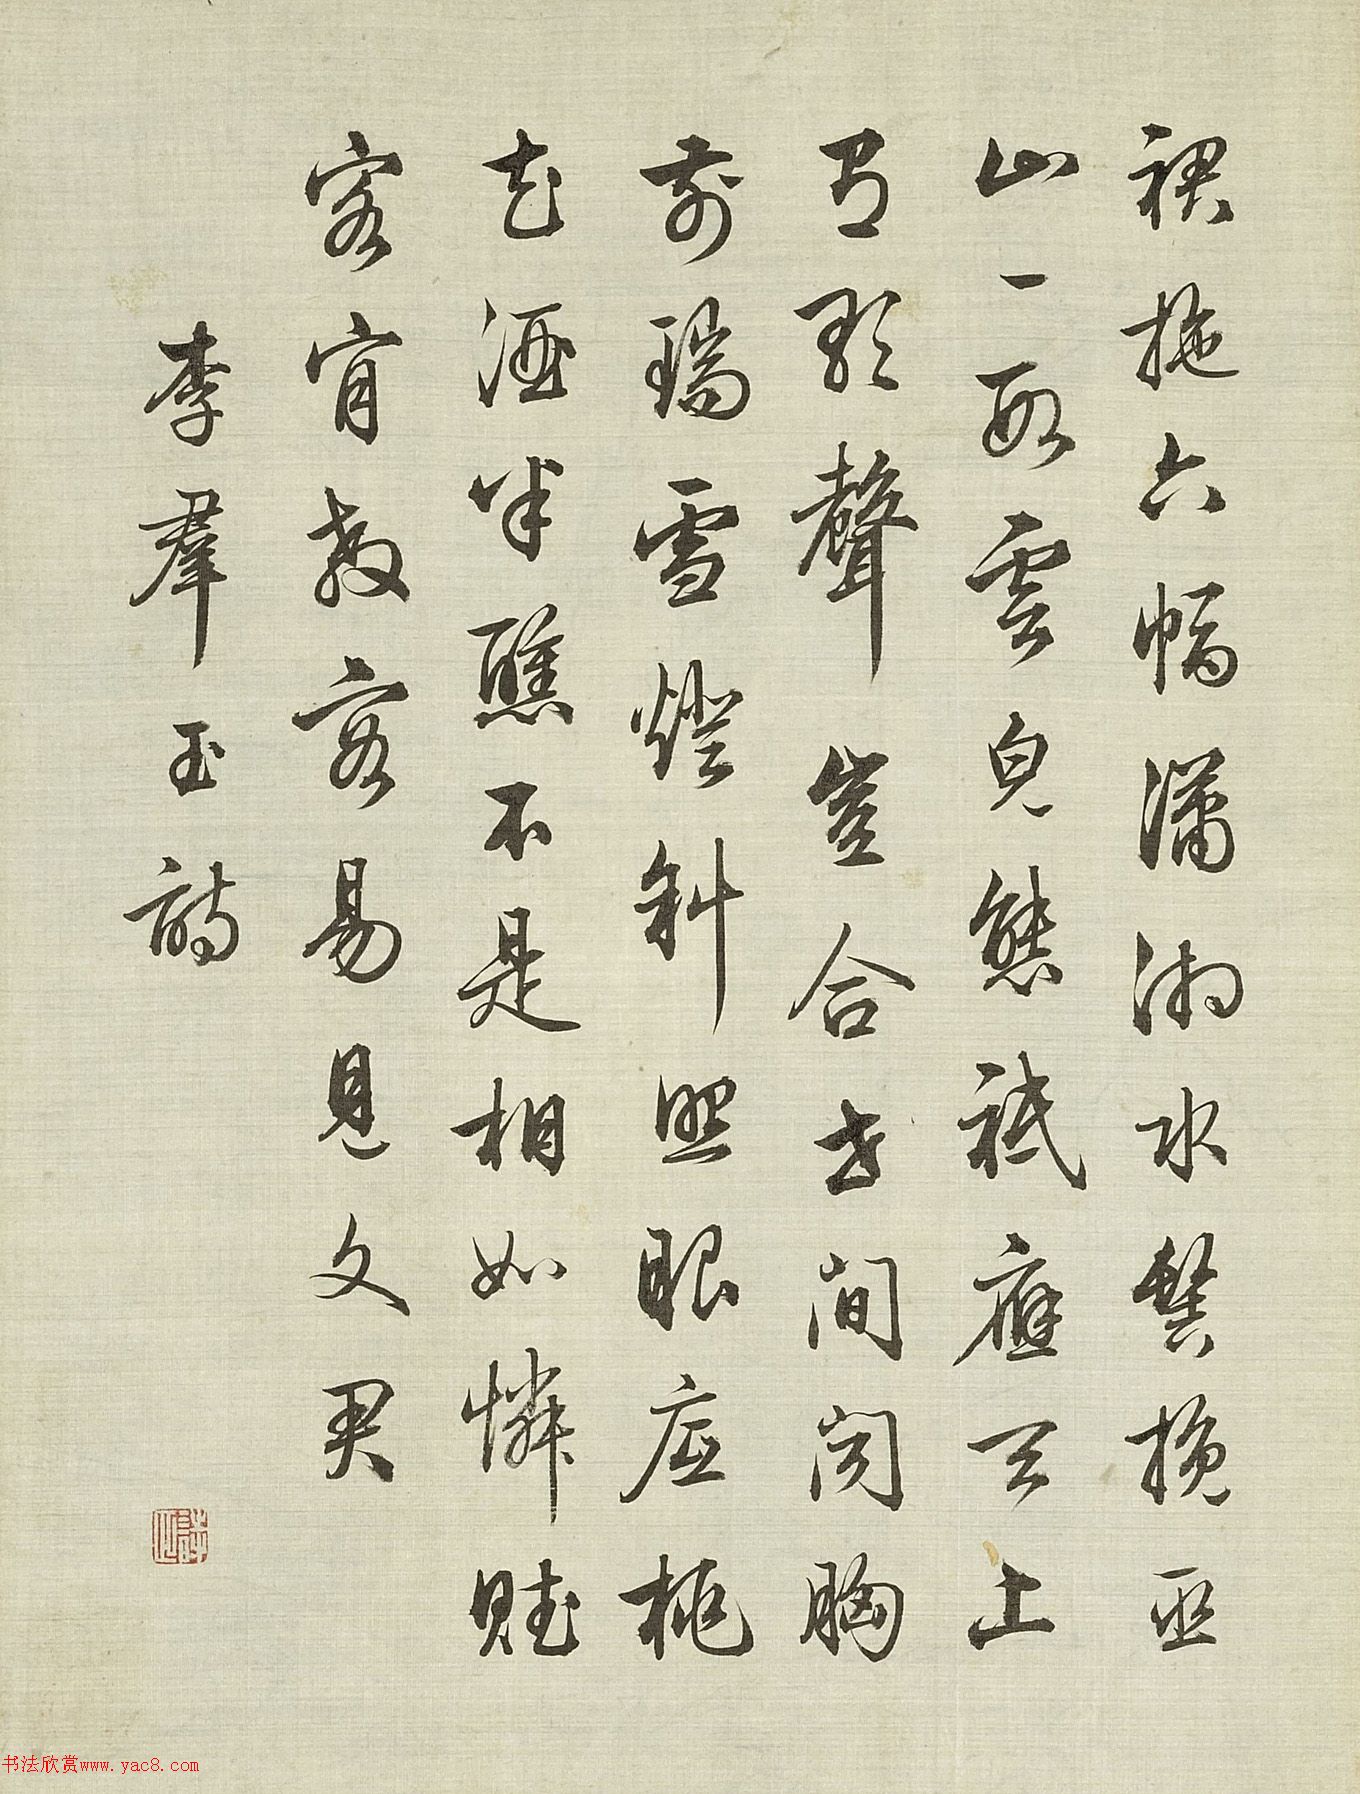 裙拖六幅瀟湘水鬢挽巫
山一段雲皃態祇應天上
有歌聲豈合世間聞胸
前瑞雪燈斜照眼底桃
花酒半醺不是相如憐賦
客肯教容易見文君
李羣玉詩
书法欣赏www.yac8.com